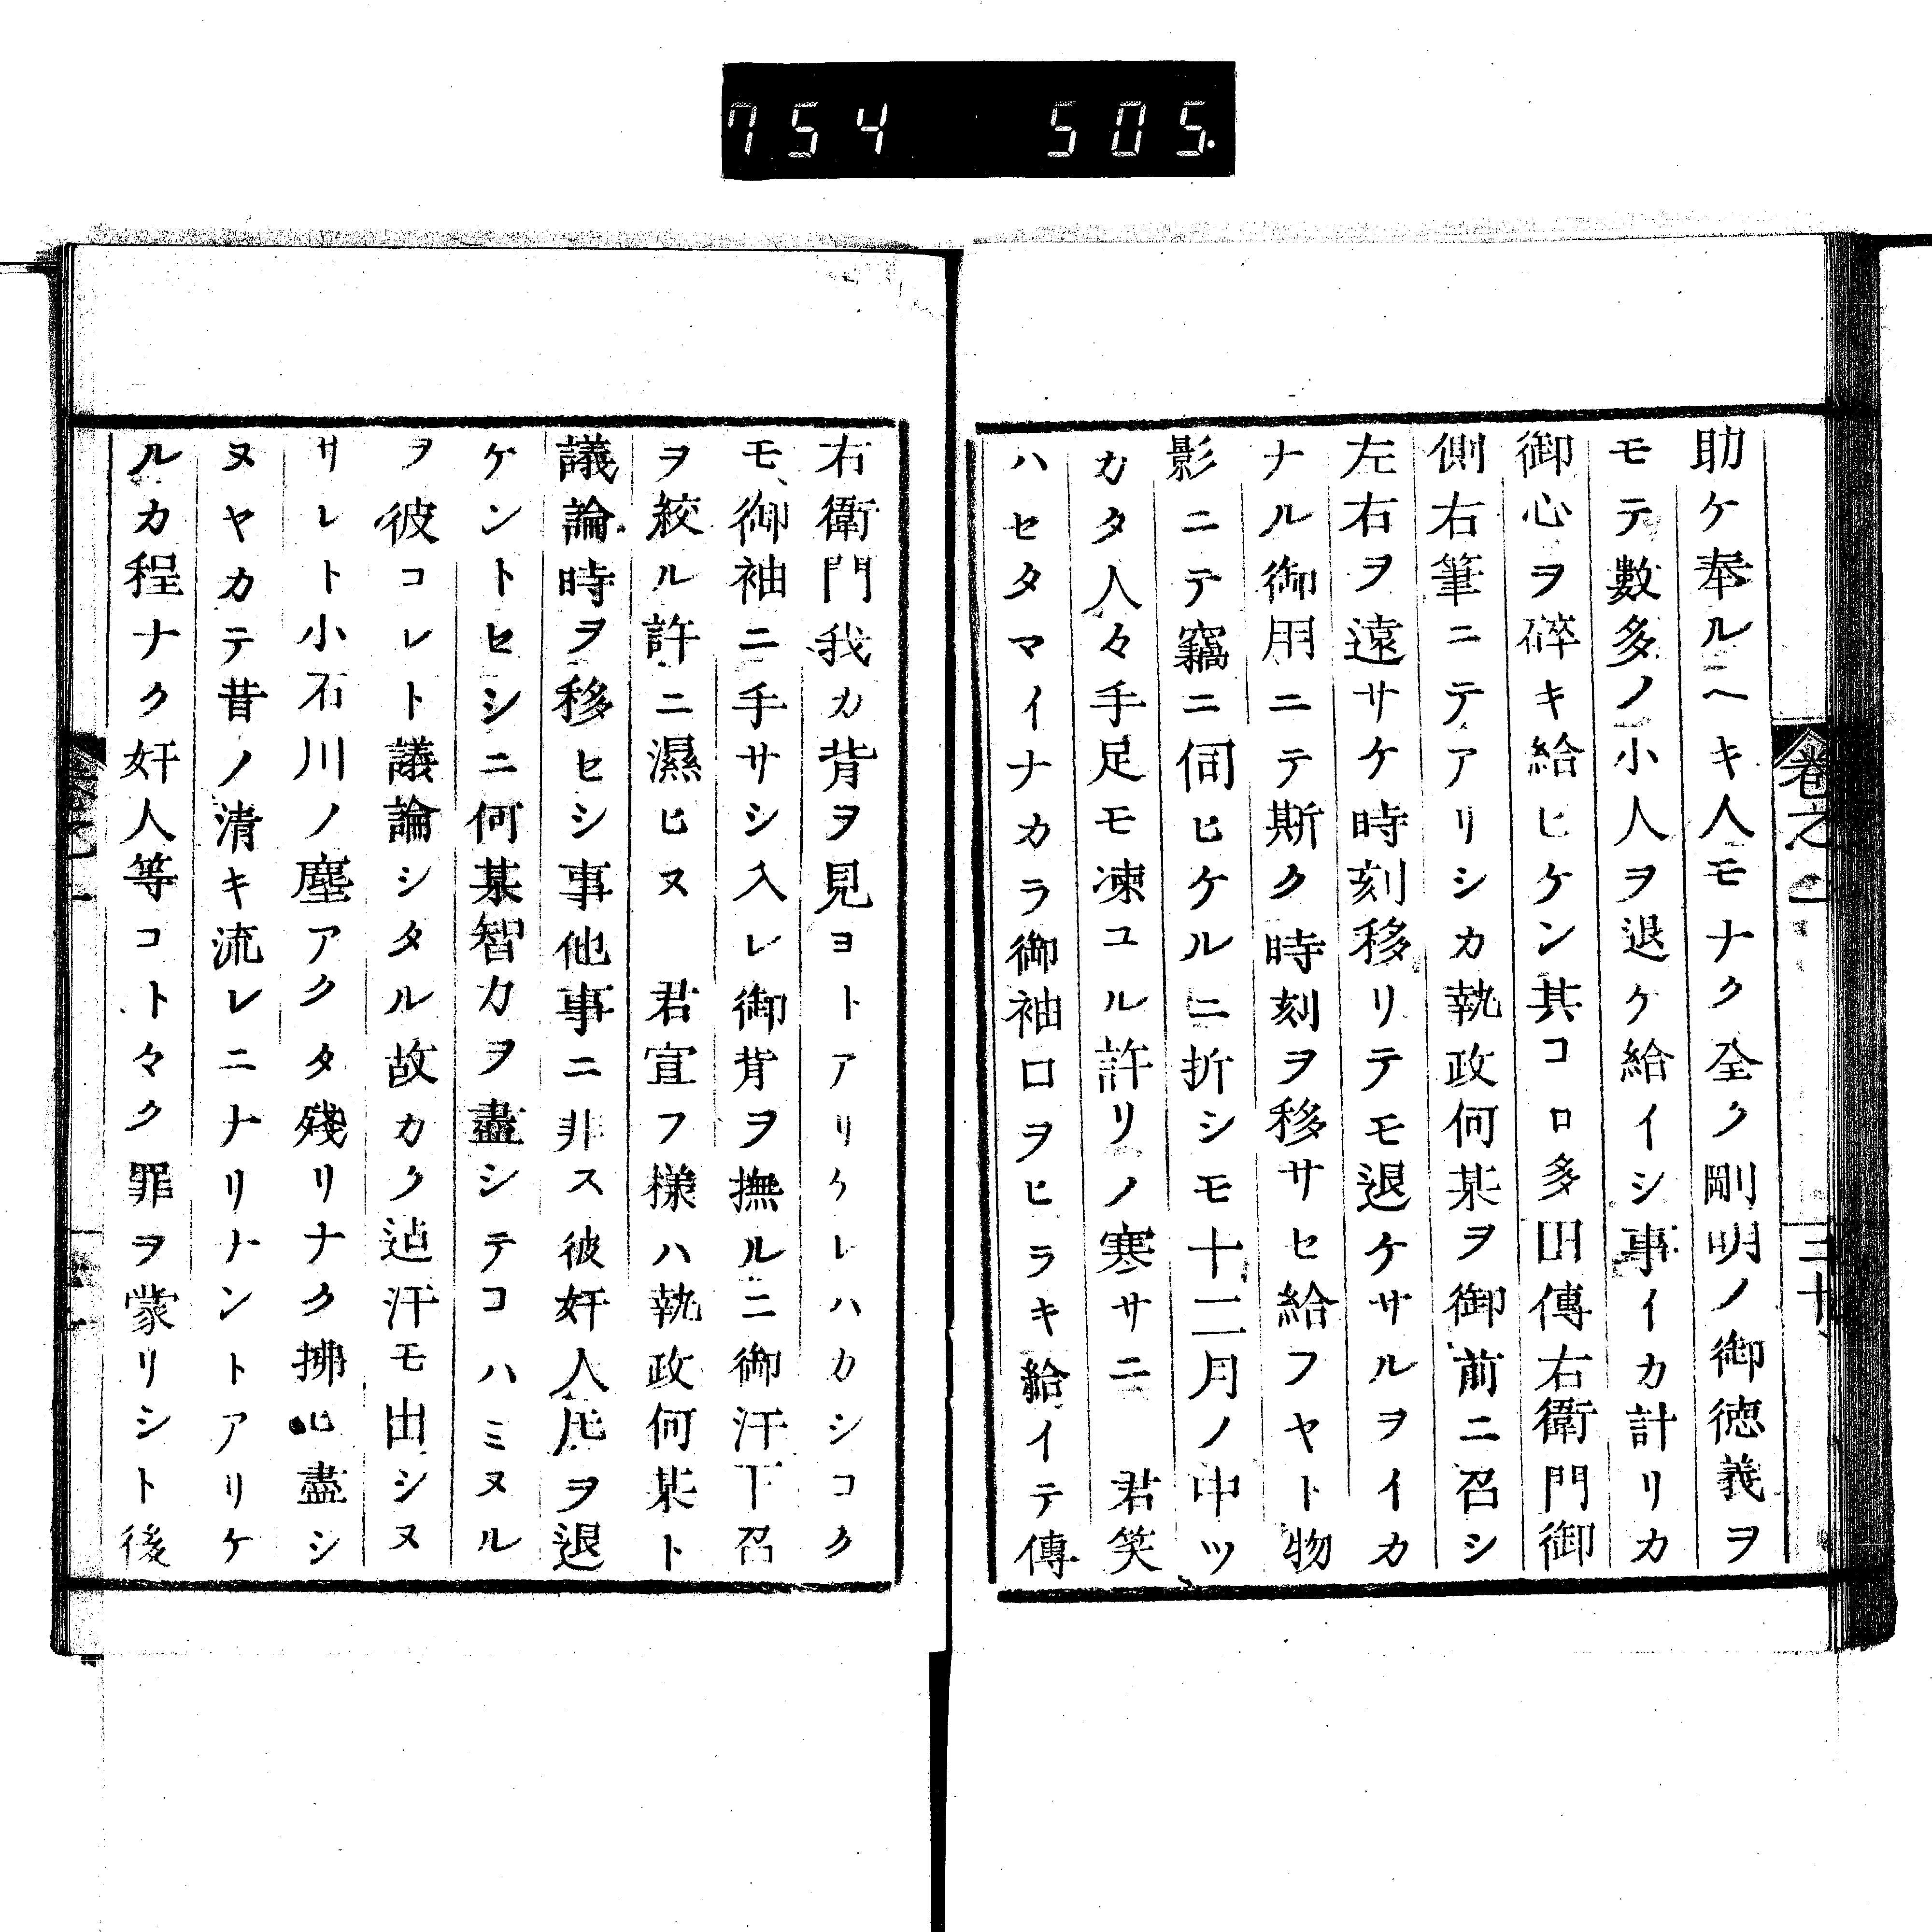 754 505.
助ケ奉ルヘキ人モナク全ク剛明ノ御徳義ヲ
モテ數多ノ小人ヲ退ケ給イシ事イカ計リカ
御心ヲ碎キ給ヒケン其コロ多田傳右衛門御
側右筆ニテアリシカ執政何某ヲ御前ニ召シ
左右ヲ遠サケ時刻移リテモ退ケサルヲイカ
ナル御用ニテ斯ク時刻ヲ移サセ給フヤト物
影ニテ竊ニ伺ヒケルニ折シモ十二月ノ中ツ
カタ人々手足モ凍ユル許リノ寒サニ　君笑
ハセタマイナカラ御袖口ヲヒラキ給イテ傳
右衛門我カ背ヲ見ヨトアリケレハカシコク
モ御袖ニ手サシ入レ御背ヲ撫ルニ御汗下召
ヲ絞ル許ニ濕ヒヌ　君宣フ様ハ執政何某ト
議論時ヲ移セシ事他事ニ非ス彼奸人𪜈ヲ退
ケントセシニ何某智力ヲ盡シテコハミヌル
ヲ彼コレト議論シタル故カク迠汗モ出シヌ
サレト小石川ノ塵アクタ殘リナク拂ヒ盡シ
ヌヤカテ昔ノ清キ流レニナリナントアリケ
ルカ程ナク奸人等コト々ク罪ヲ蒙リシト後
卷之二
三十